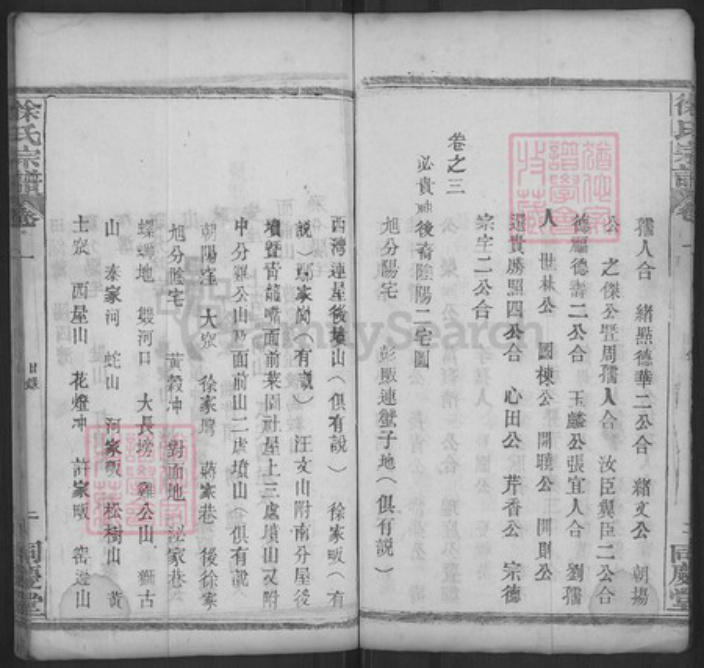 孺人合　緒點德華二公合　緒文公　朝揚
公　之傑公暨周孺人合　汝臣翼臣二公合
德疆德壽二公合　玉麟公張宜人合　劉孺
人　世林公　國棟公　開曉公　開則公
選貴勝照四公合　心田公　芹香公　宗德
宗宇二公合
卷之三
必貴公後裔陰陽二宅圖
旭分陽宅　彭畈連蠻子地（俱有說）
西灣連屋後墳山（俱有說）　徐家畈（有
說）鄭家岗（有說）　汪文山附南分屋後
墳暨青龍嘴面前菜園社屋上三處墳山又附
中分雞公山及面前山二處墳山（俱有說
朝陽窪　大㘭　徐家塆　蔣家巷　後徐家
旭分陰宅　黃穀冲　對面地　泌家巷
螺螄地　雙河口　大長塝　雞公山　獅古
山　泰家河　蛇山　河家畈　松樹山　黃
土㘭　西屋山　花燈冲　許家畈　窑邊山
徐氏宗譜　卷一　目錄　二　同慶堂
FamilySearch